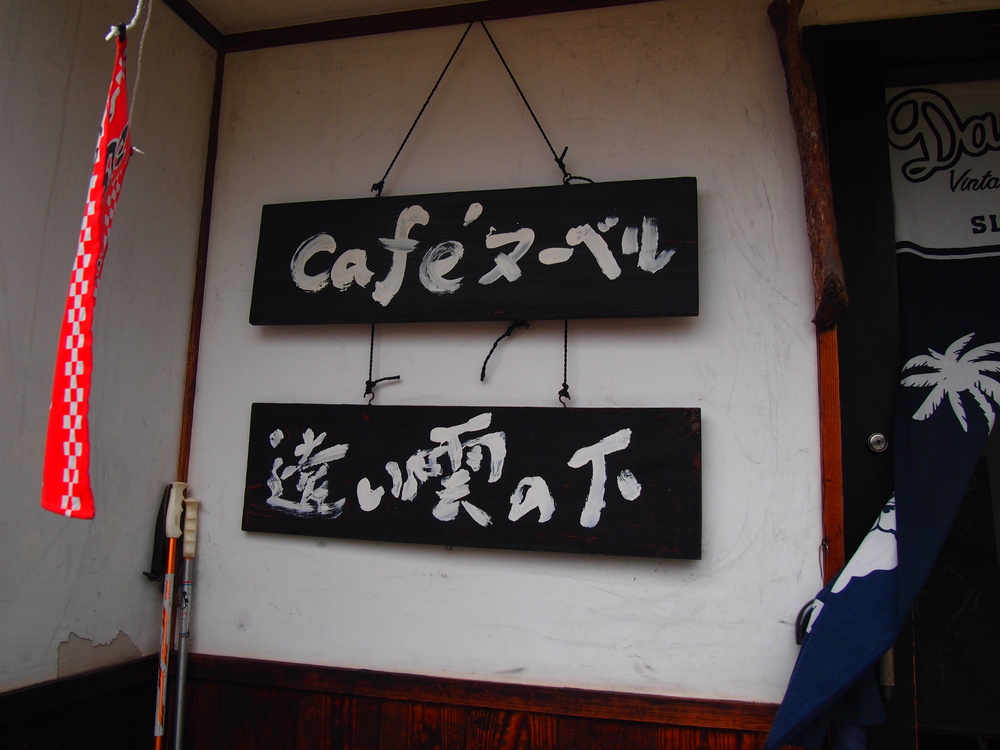 café ヌーベル
遠い雲の下
Da
Vinta
SL